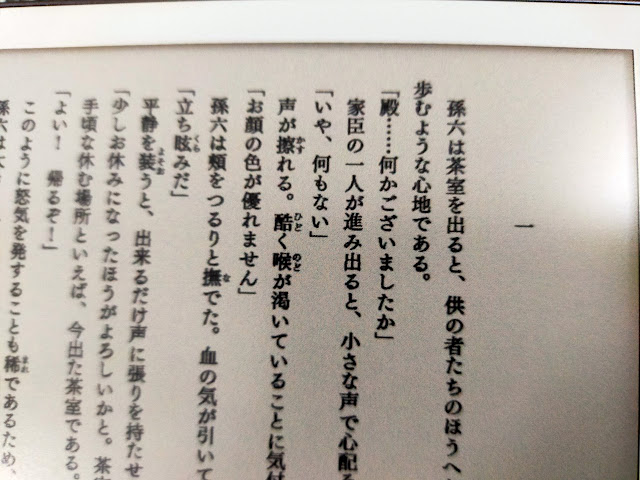 一
孫六は茶室を出ると、供の者たちのほうへ
歩むような心地である。
「殿……何かございましたか」
家臣の一人が進み出ると、小さな声で心配る
「いや、何もない」
声が擦れる。酷く喉が渇いていることに気付
「お顔の色が優れません」
孫六は頬をつるりと撫でた。血の気が引いて
「立ち眩みだ」
平静を装うと、出来るだけ声に張りを持たせ
「少しお休みになったほうがよろしいかと。茶室
手頃な休む場所といえば、今出た茶室である。
「よい！　帰るぞ！」
このように怒気を発することも稀であるため、
孫六は